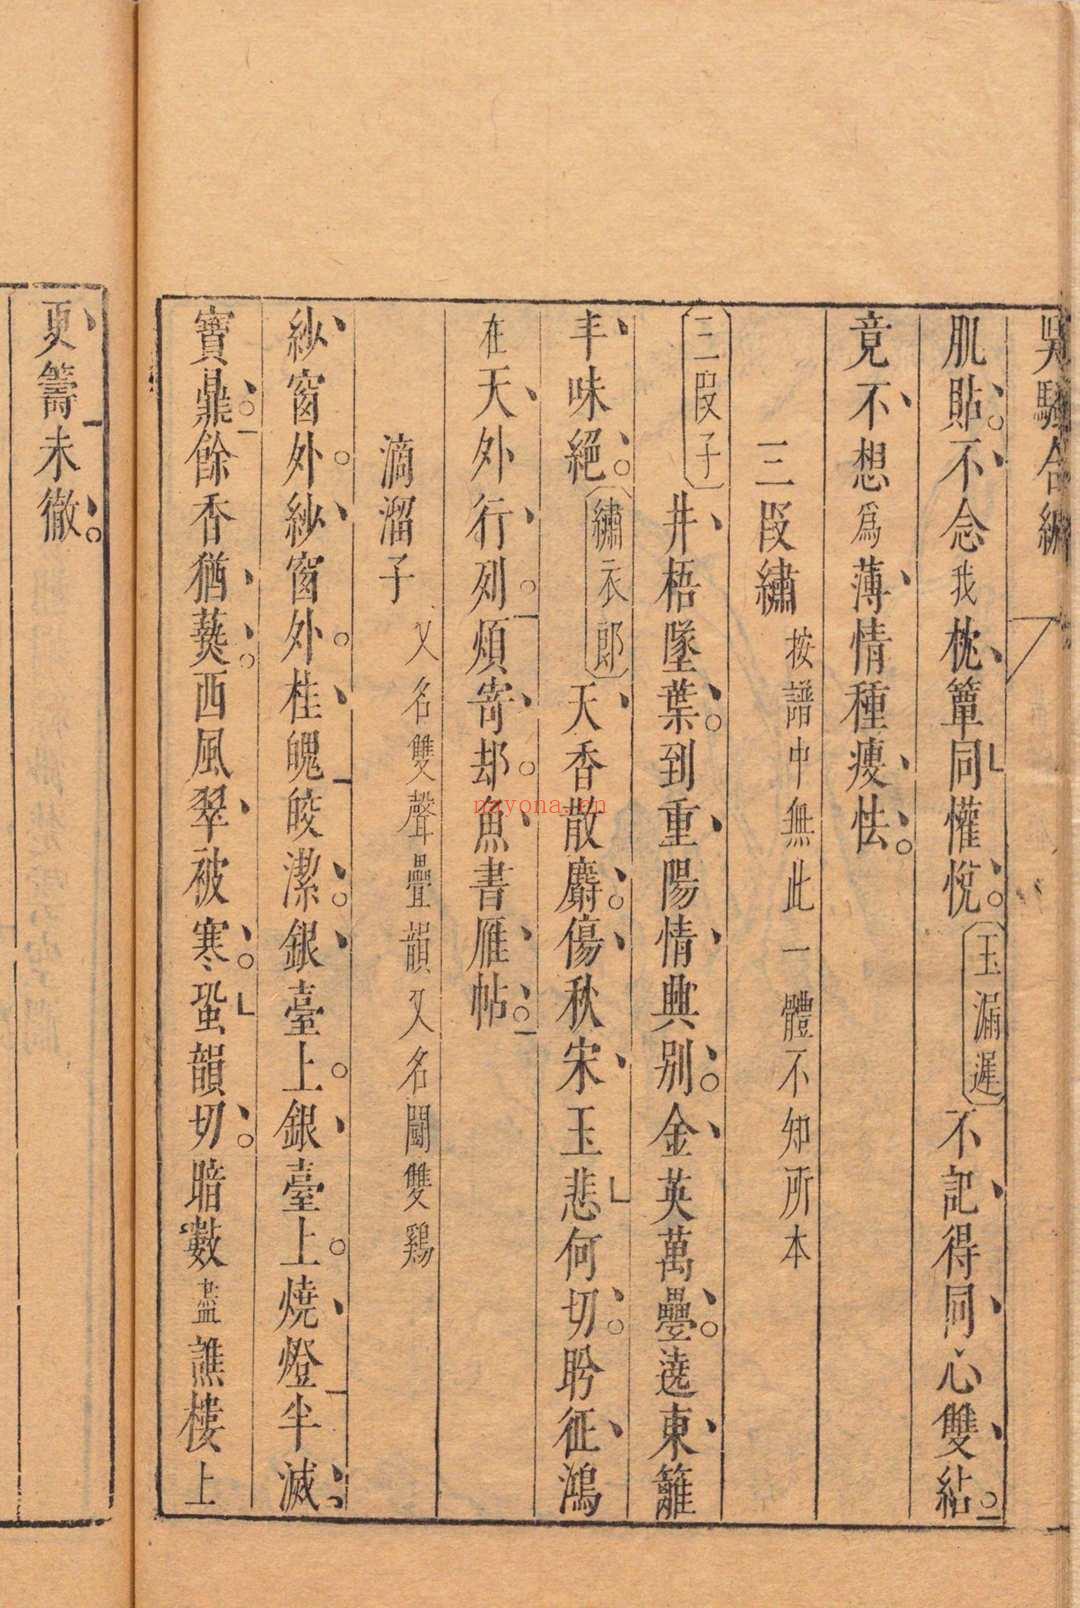 吳騷合編
肌貼不念我枕簟同懽悅玉漏遲不記得同心雙結
竟不想爲薄情種瘦怯
三段繡按譜中無此一體不知所本
三段子井梧墜葉到重陽情興別金英萬疊遶東籬
丰味絕繡衣郎天香散麝傷秋宋玉悲何切盻征鴻
在天外行列煩寄却魚書雁帖
滴溜子又名雙聲疊韻又名鬪雙鷄
紗窗外紗窗外桂魄皎潔銀臺上銀臺上燒燈半滅
寶鼎餘香猶爇西風翠被寒蛩韻切暗數盡譙樓上
更籌未徹
nayona.cn